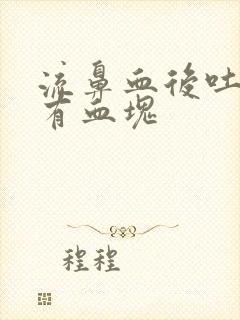 流鼻血後吐
有血塊
程程